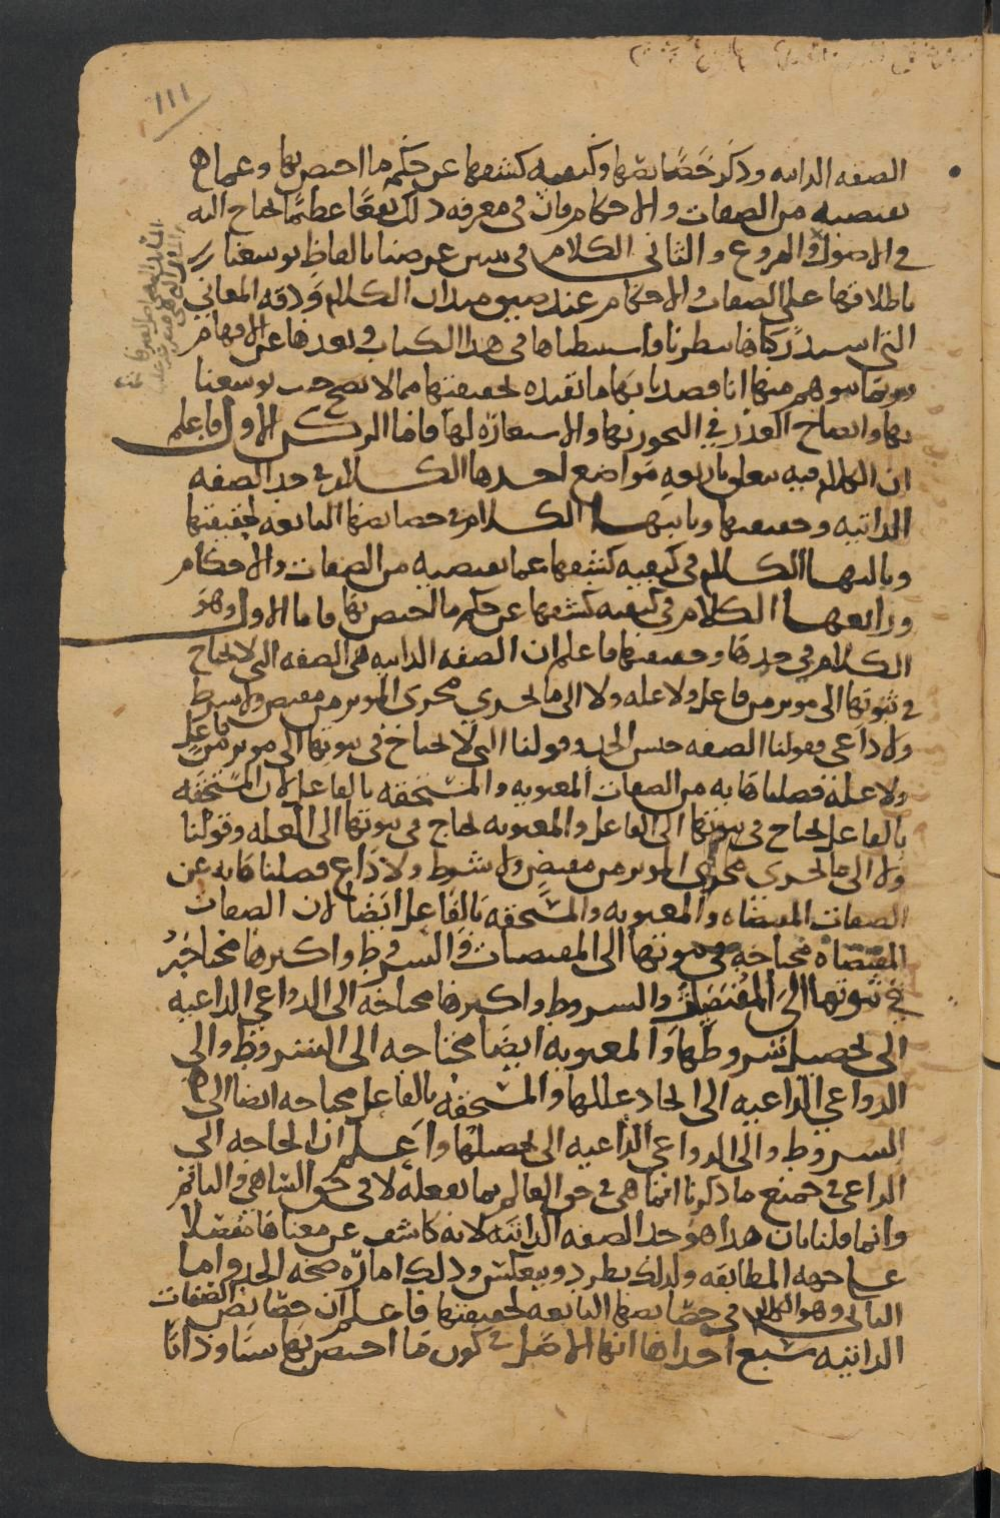 ١١١
الصفه الذاتيه وذكر خصايصها وكيفيه كشفها عن حكم ما اختص بها وعما
تقتضيه من الصفات والاحكام فان في معرفه ذلك نفعا عظيما يحتاج اليه
في الاصول والفروع والثاني الكلام في تبيين غرضنا بالفاظ توسعنا
باطلاقها على الصفات والاحكام عند ضيق ميدان الكلام ودقه المعاني
التي استدركناها بنظرنا واستنبطناها في هذا الكتاب وبعدها عن الافهام
يتوهم منها انا قصدنا بها ما تفيده لحقيقتها مما لا يصح توسعنا
بها وايضاح العذر في التجوز بها والاستعاره لها فاما الركن الاول فاعلم
ان الكلام فيه يتعلق باربعه مواضع احدها الكلام في حد الصفه
الذاتيه وحقيقتها وثانيها الكلام في خصايصها التابعه لحقيقتها
وثالثها الكلام في كيفيه كشفها عما تقتضيه من الصفات والاحكام
ورابعها الكلام في كيفيه كشفها عن حكم ما اختص بها فاما الاول وهو
الكلام في حدها وحقيقتها فاعلم ان الصفه الذاتيه هي الصفه التي لا تحتاج
في ثبوتها الى موثر من فاعل ولا عله ولا الى ما يجري مجرى الموثر من مقتض ولا شرط
ولا داعي فقولنا الصفه جنس الحد وقولنا التي لا تحتاج في ثبوتها الى موثر من فاعل
ولا عله فصلناها به من الصفات المعنويه والمستحقه بالفاعل لان المستحقه
بالفاعل تحتاج في ثبوتها الى الفاعل والمعنويه تحتاج في ثبوتها الى العله وقولنا
ولا الى ما يجري مجرى الموثر من مقتض ولا شرط ولا داع فصلناها به عن
الصفات المقتضاه والمعنويه والمستحقه بالفاعل ايضا لان الصفات
المقتضاه محتاجه في ثبوتها الى المقتضيات والشروط واكثرها محتاجه
في ثبوتها الى المقتضيات والشروط واكثرها محتاجه الى الدواعي الداعيه
الى تحصيل شروطها والمعنويه ايضا محتاجه الى الشروط والى
الدواعي الداعيه الى ايجاد عللها والمستحقه بالفاعل محتاجه ايضا الى
الشروط والى الدواعي الداعيه الى تحصيلها واعلم ان الحاجه الى
الداعي في جميع ما ذكرنا انما هي في حق العالم بما يفعله لا في حق الساهي والنائم
وانما قلنا بان هذا هو حد الصفه الذاتيه لانه كاشف عن معناها مفصلا
على جهه المطابقه ولذلك يطرد وينعكس وذلك اماره صحه الحد واما
الثاني وهو الكلام في خصايصها التابعه لحقيقتها فاعلم ان خصايص الصفات
الذاتيه سبع احداها انها الاصل في كون ما اختص بها شيا وذاتا